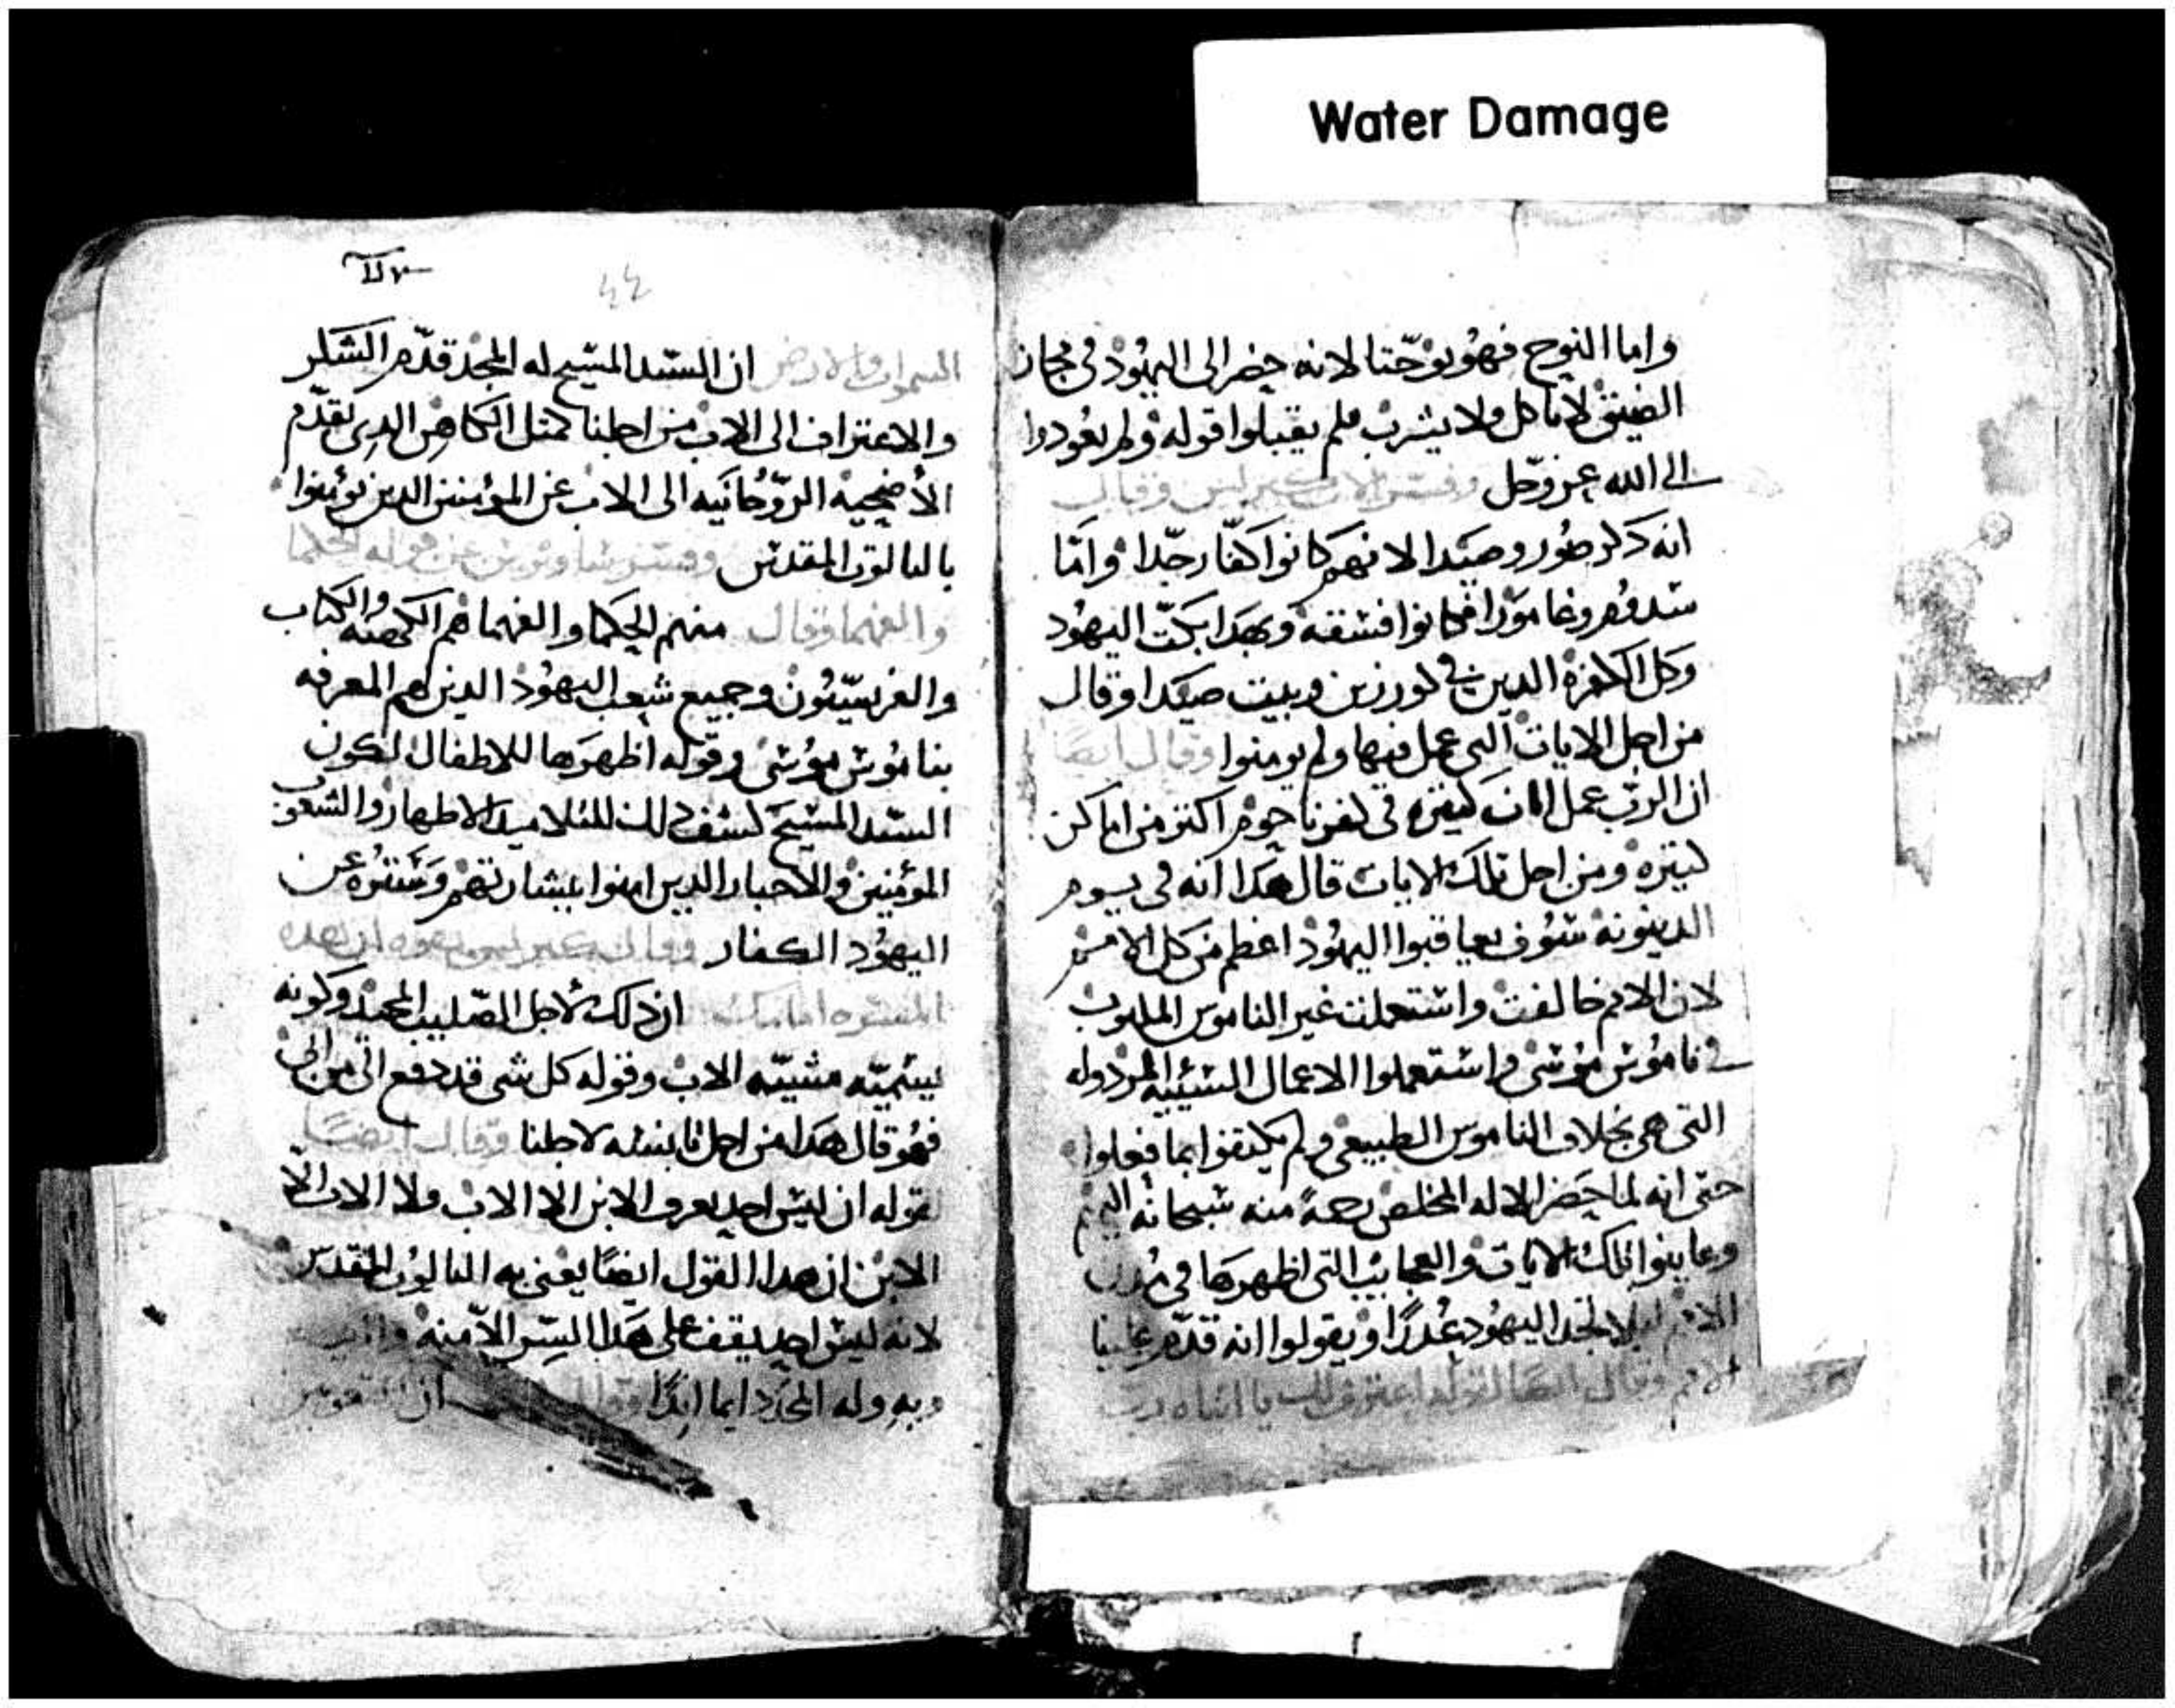 Water Damage
واما النوح فهو يوحنا لانه حضر الى اليهود فى مجاز
الضيق لا ياكل ولا يشرب فلم يقبلوا قوله ولم يعودوا
الى الله عز وجل وفسر وقال
انه ذكر صور وصيدا لانهم كانوا كفار جدا واما
سدوم وغامورا فكانوا فسقه وبهدا بكت اليهود
وكل الكفره الدين فى كورزين وبيت صيدا وقال
من اجل الايات التى عمل فيها ولم يومنوا وقال ايضا
ان الرب عمل ايات كتيره فى كفرناحوم اكتر من اماكن
كتيره ومن اجل تلك الايات قال هكدا انه فى يوم
الدينونه سوف يعاقبوا اليهود اعظم من كل الامم
لان الامم خالفت واستعملت غير الناموس المكتوب
فى ناموس موسى واستعملوا الاعمال السيئيه المردوله
التى هى بخلاف الناموس الطبيعى ولم يكتفوا بما فعلوا
حتى انه لما حضر الاله المخلص رحمة منه سبحانه اليهم
وعاينوا تلك الايات والعجايب التى اظهرها فى مدن
الامم ليلا تجد اليهود عدرا ويقولوا انه قدم علينا
الامم وقال ايضا لقوله اعترف لك يا ابتاه رب
44
السموات والارض ان السيد المسيح له المجد قدم الشكر
والاعتراف الى الاب من اجلنا كمتل الكاهن الدى يقدم
الأضحيه الروحانيه الى الاب عن المؤمنين الدين يؤمنوا
بالتالوت المقدس وفسر ساويرس عن قوله الحكما
والفهما وقال منهم الحكما والفهما هم الكهنه والكتاب
والفريسيون وجميع شعب اليهود الدين لهم المعرفه
بناموس موسى وقوله اظهرها للاطفال لكون
السيد المسيح كشف دلك للتلاميد الاطهار والشعوب
المؤمنين والاحبار الدين امنوا ببشارتهم وستره عن
اليهود الكفار وقال
ان دلك لأجل الصليب المجيد وكونه
يسميه مشيه الاب وقوله كل شى قد دفع الى من ابى
فهو قال هدا من اجل تانسه لاجلنا وقال ايضا
لقوله ان ليس احد يعرف الابن الا الاب ولا الاب الا
الابن ان هدا القول ايضا يعنى به التالوت المقدس
لانه ليس احد يقف على هدا السر الا منه
وبه وله المجد دايما ابدا